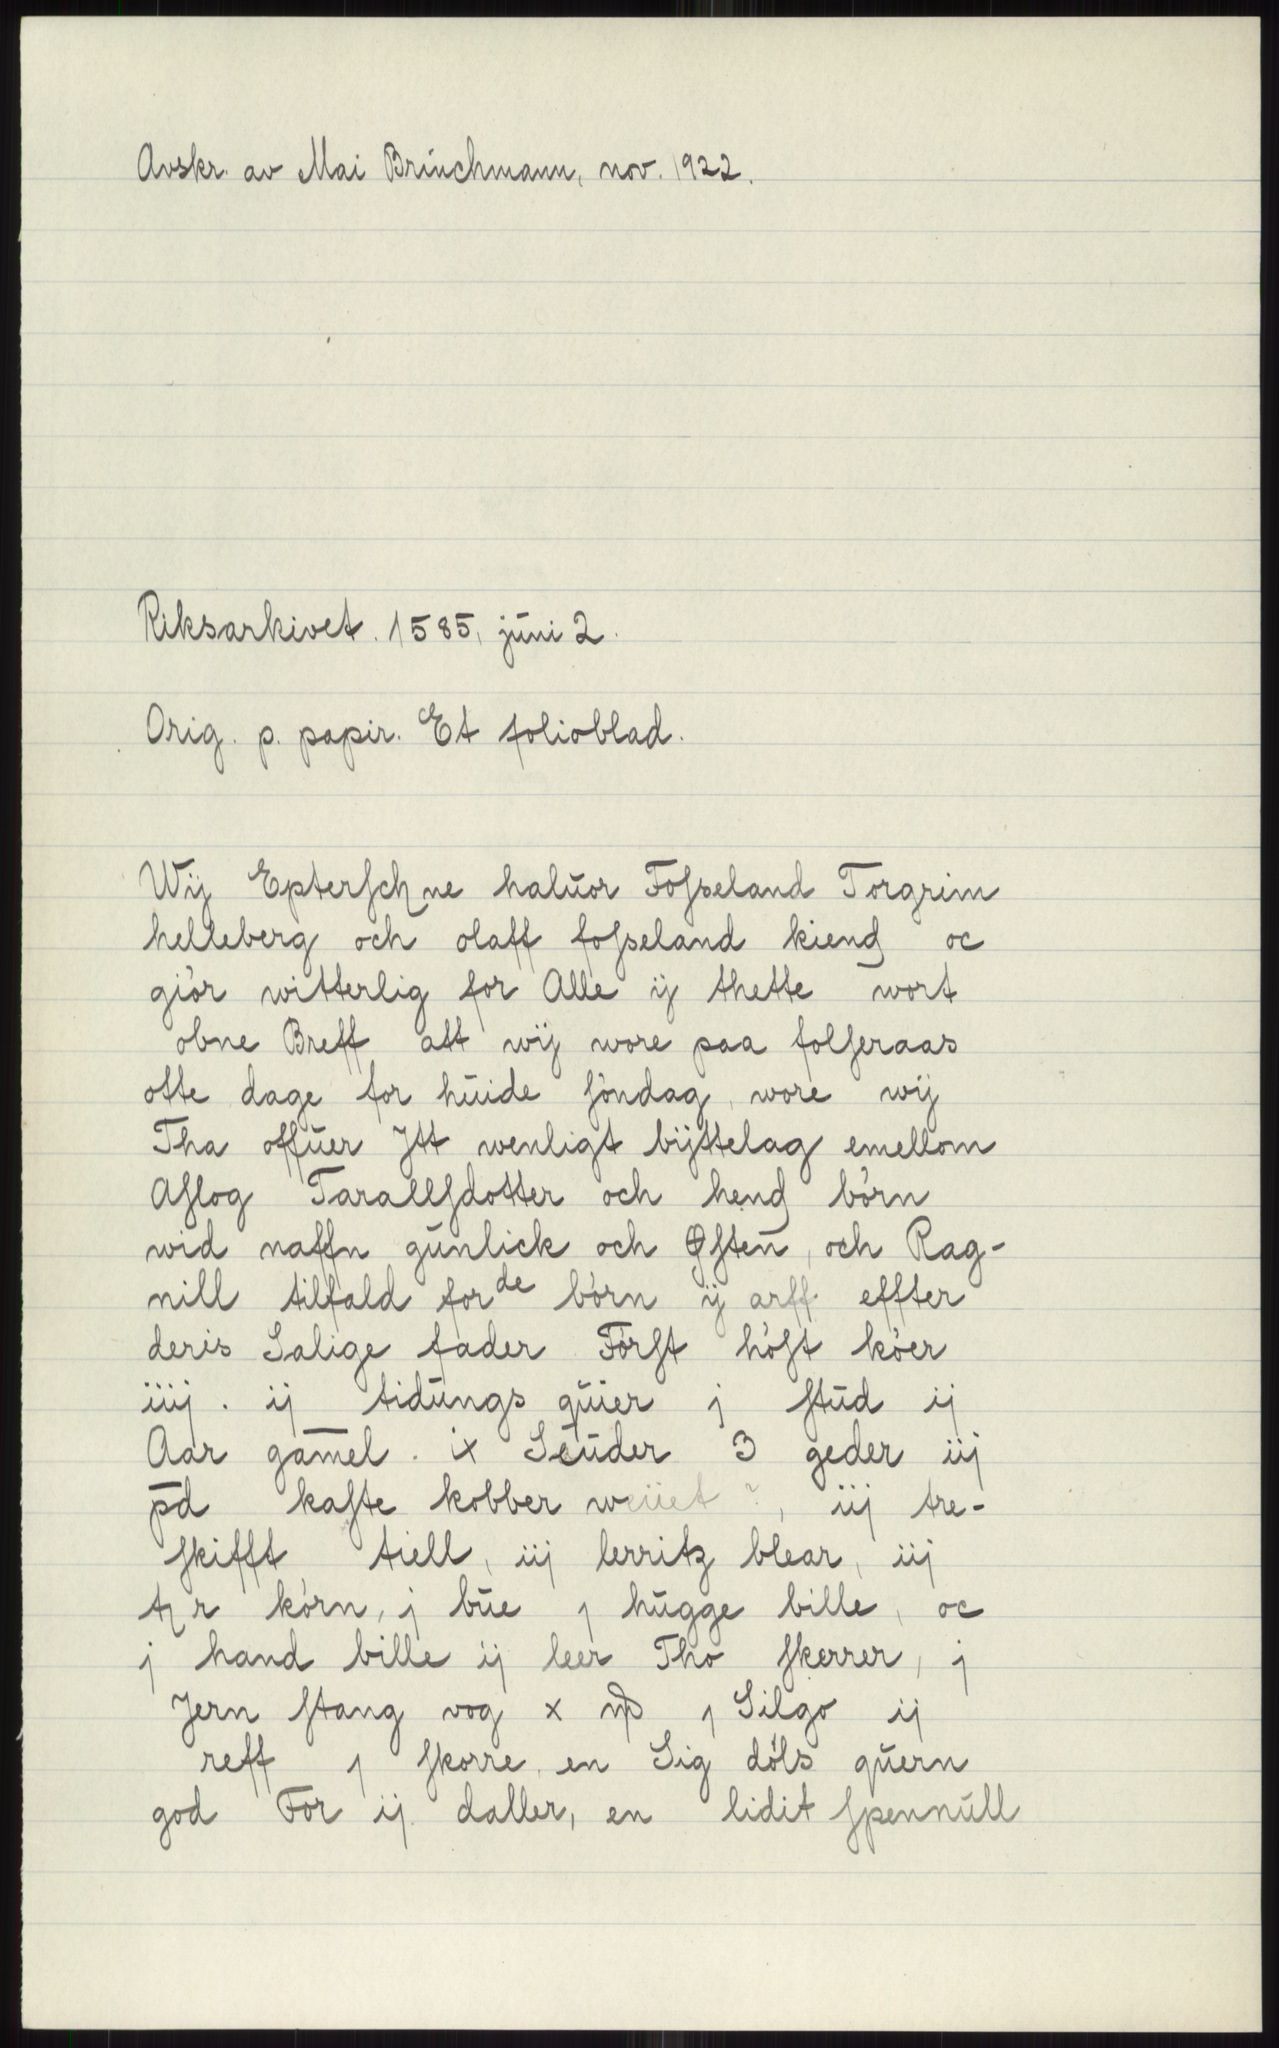 Avskr. av Mai Brinchmann, nov. 1922.
Riksarkivet. 1585, juni 2.
Orig. p. papir. Et folioblad.
Wij Epterſch ne haluor Foſseland Torgrim
helleberg och olaff foſseland kiend oc
giör witterlig for Alle ij thette wort
obne Breff att wij wore paa folſeraas
otte dage for huide ſöndag, wore wij
Tha offuer Jtt wenligt bÿttelag emellom
Aſlog Tarallſdotter och hend börn
wid naffn gunlick och Øſten, och Rag-
nill tilfald forde börn ij arff effter
deris Salige fader Förſt höſt köer
iiij . ij tidungs quier j ſtud ij
Aar gamel . ix Seuder 3 geder iij
pd kaſte kobber weiiet ?, iij tre-
ſkifft tiell, iij lerritz blear, iij
tr körn, j bue j hugge bille, oc
j hand bille ij leer Tho ſkerrer, j
Jern ſtang vog x j Silgo ij
reff j ſkorre, en Sig döls quern
god For ij daller, en lidit ſpennull